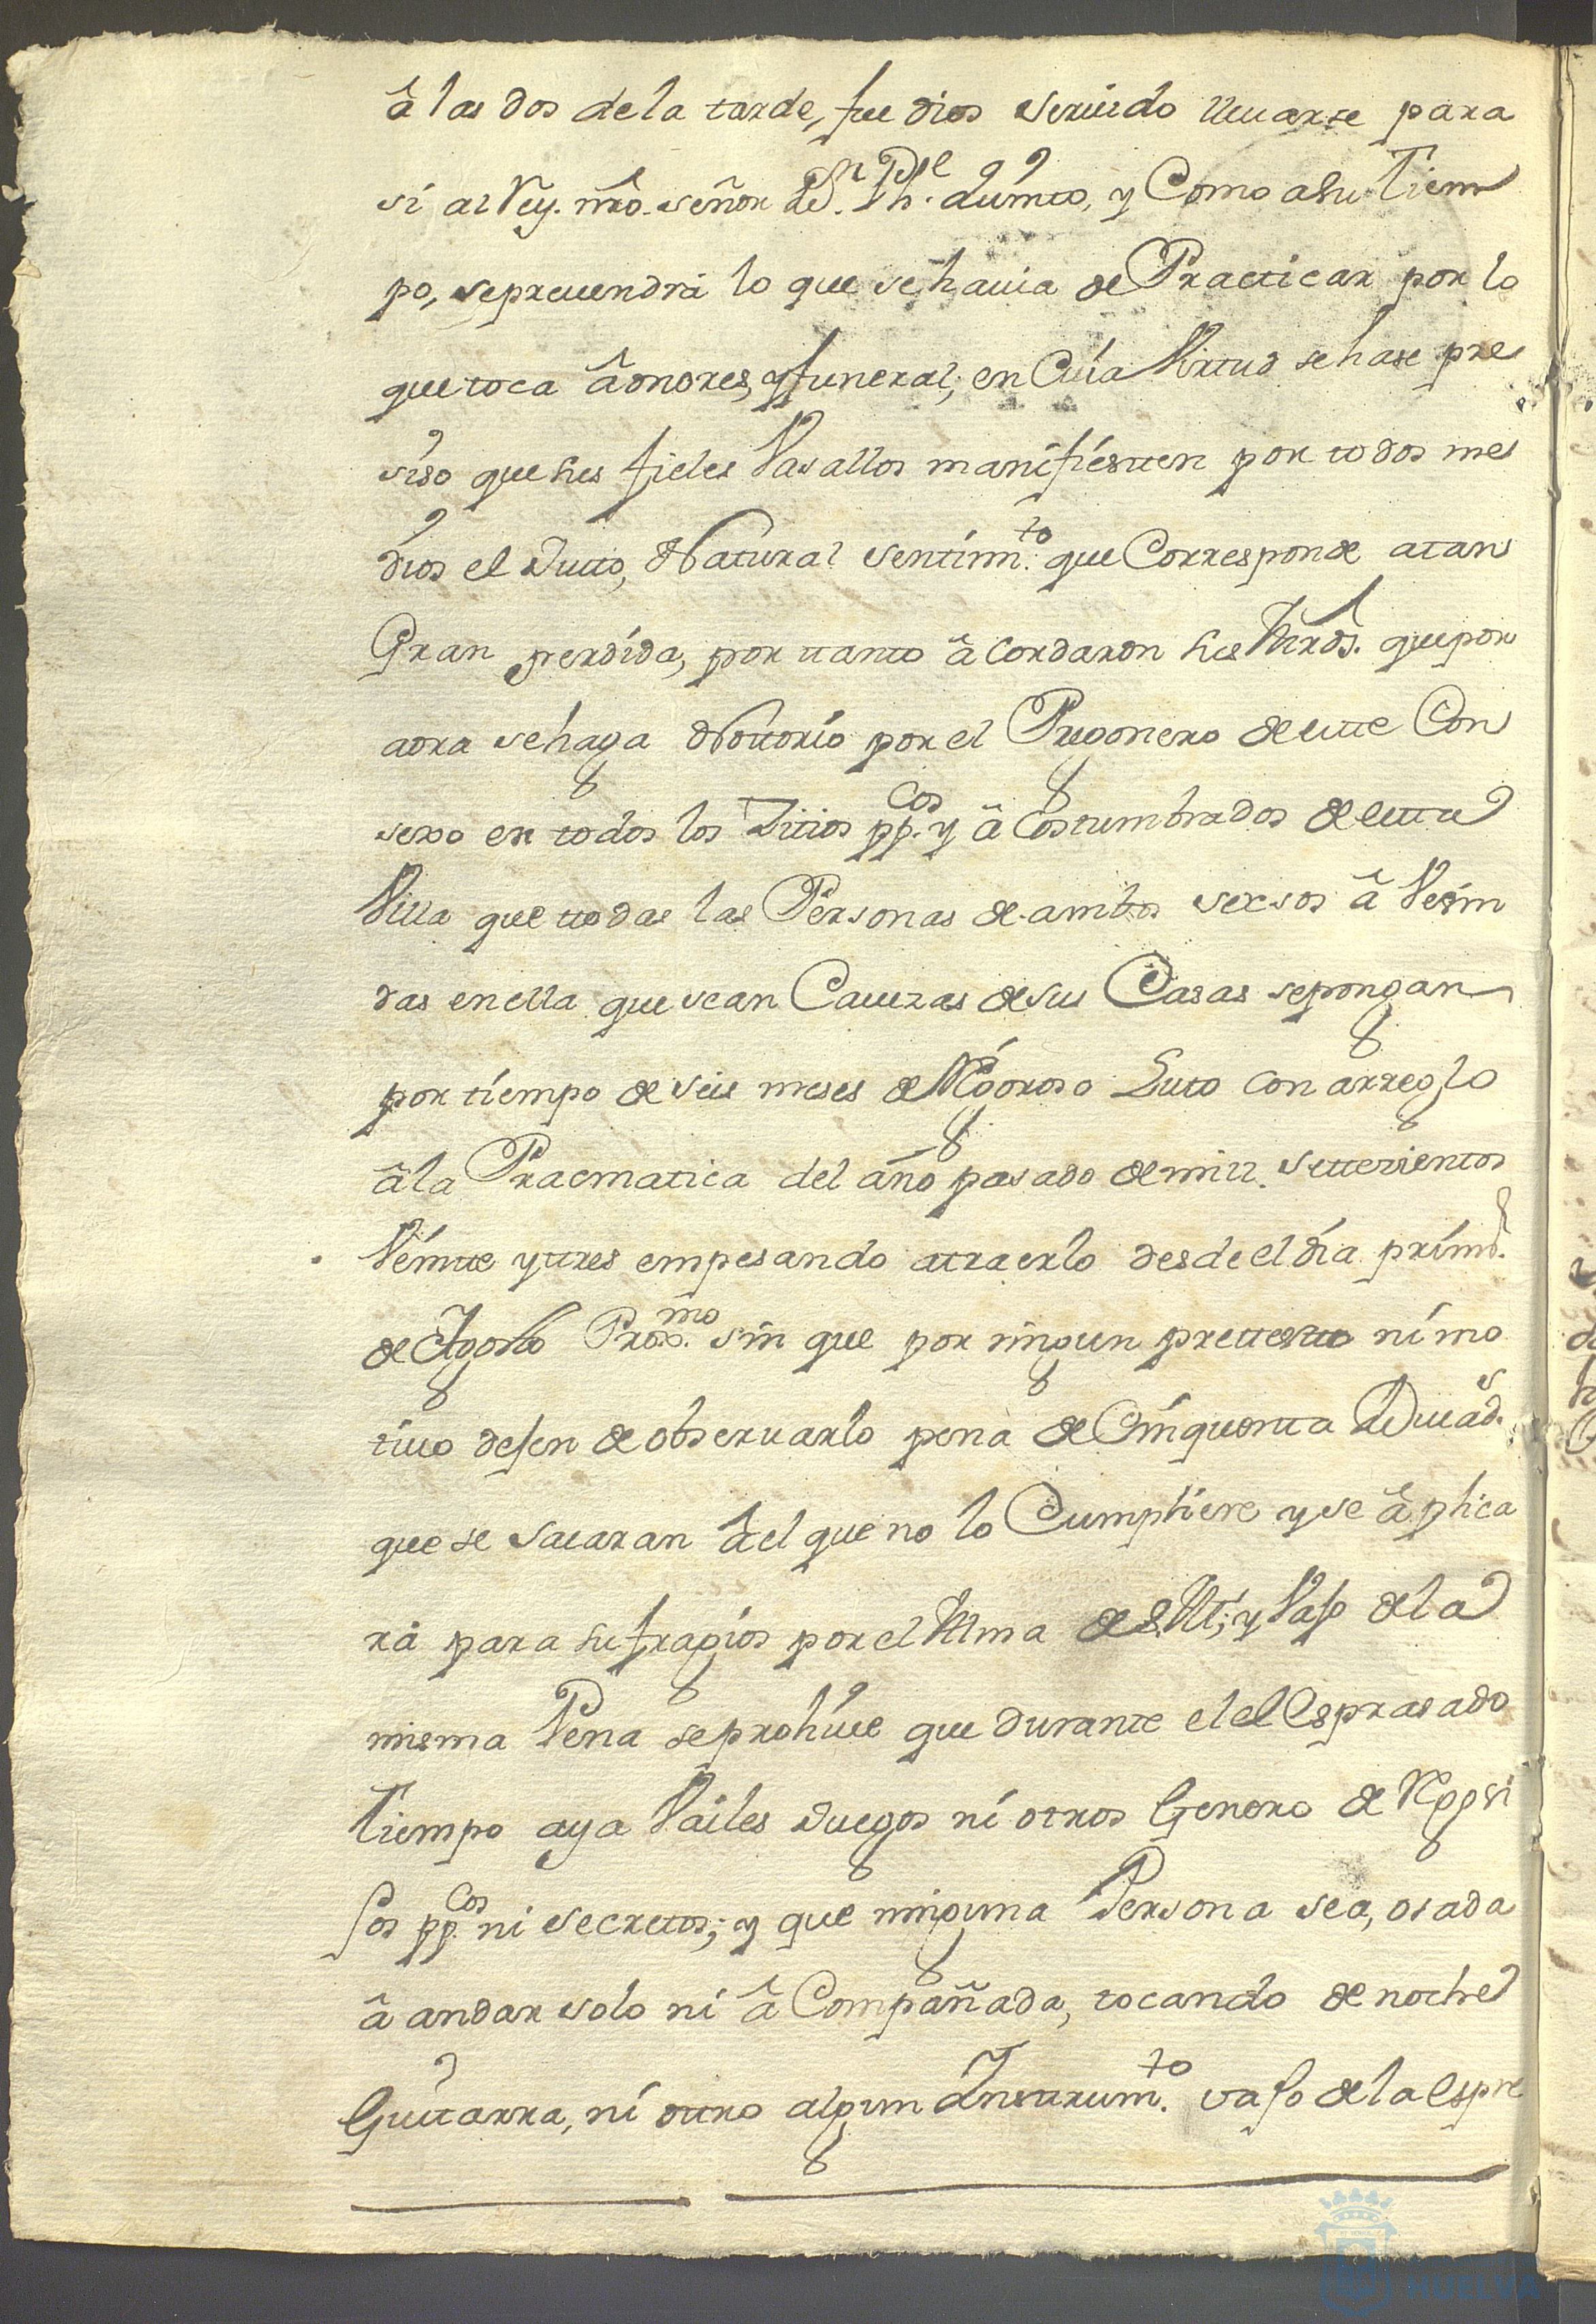 â las dos de la tarde, fue dios seruido lleuarse para
si al Rey. nrô. señor Dn. Phe. quinto, y Como asu Tiem
po, se preuendrá lo que se hauia de Practicar por lo
que toca â onores, y funeral; en Cuía Virtud se hase pre
siso que sus fieles Vasallos manifiestten por todos me
dios el Justto, Natural sentimto. que Corresponde atan
Gran perdida, por ttanto â cordaron sus Mrds. que por
aora se haga Nottorio por el Pregonero de estte Con
sexo en todos los Sitios ppcos. y â Costumbrados de estta
Villa que ttodas las Personas de ambos sexsos â Vesin
das en ella que sean Cauezas de sus Casas se pongan
por tiempo de seis meses de Rigoroso Luto con arreglo
â la Pracmatica del año pasado de mill. settezientos
Veintte y ttres empesando attraerlo desde el día primo.
de Agosto Proxmo. sin que por ningun prettestto ni mo
tiuo dejen de obseruarlo pena de Cinquentta Ducads.
que se sacaran â el que no lo Cumpliere y se â plica
rá para sufragios por el Alma de S. M; y Vajo de la
misma Pena se prohiue que durante el el Esprasado
Tiempo aya Vailes Juegos ni otros Genero de Regosi
Jos ppcos. ni secrettos; y que ninguna Persona sea, osada
â andar solo ni â Compañada, tocando de noche
Guitarra, ni ottro algun Insttrumto. vajo de la Espre
HUELVA